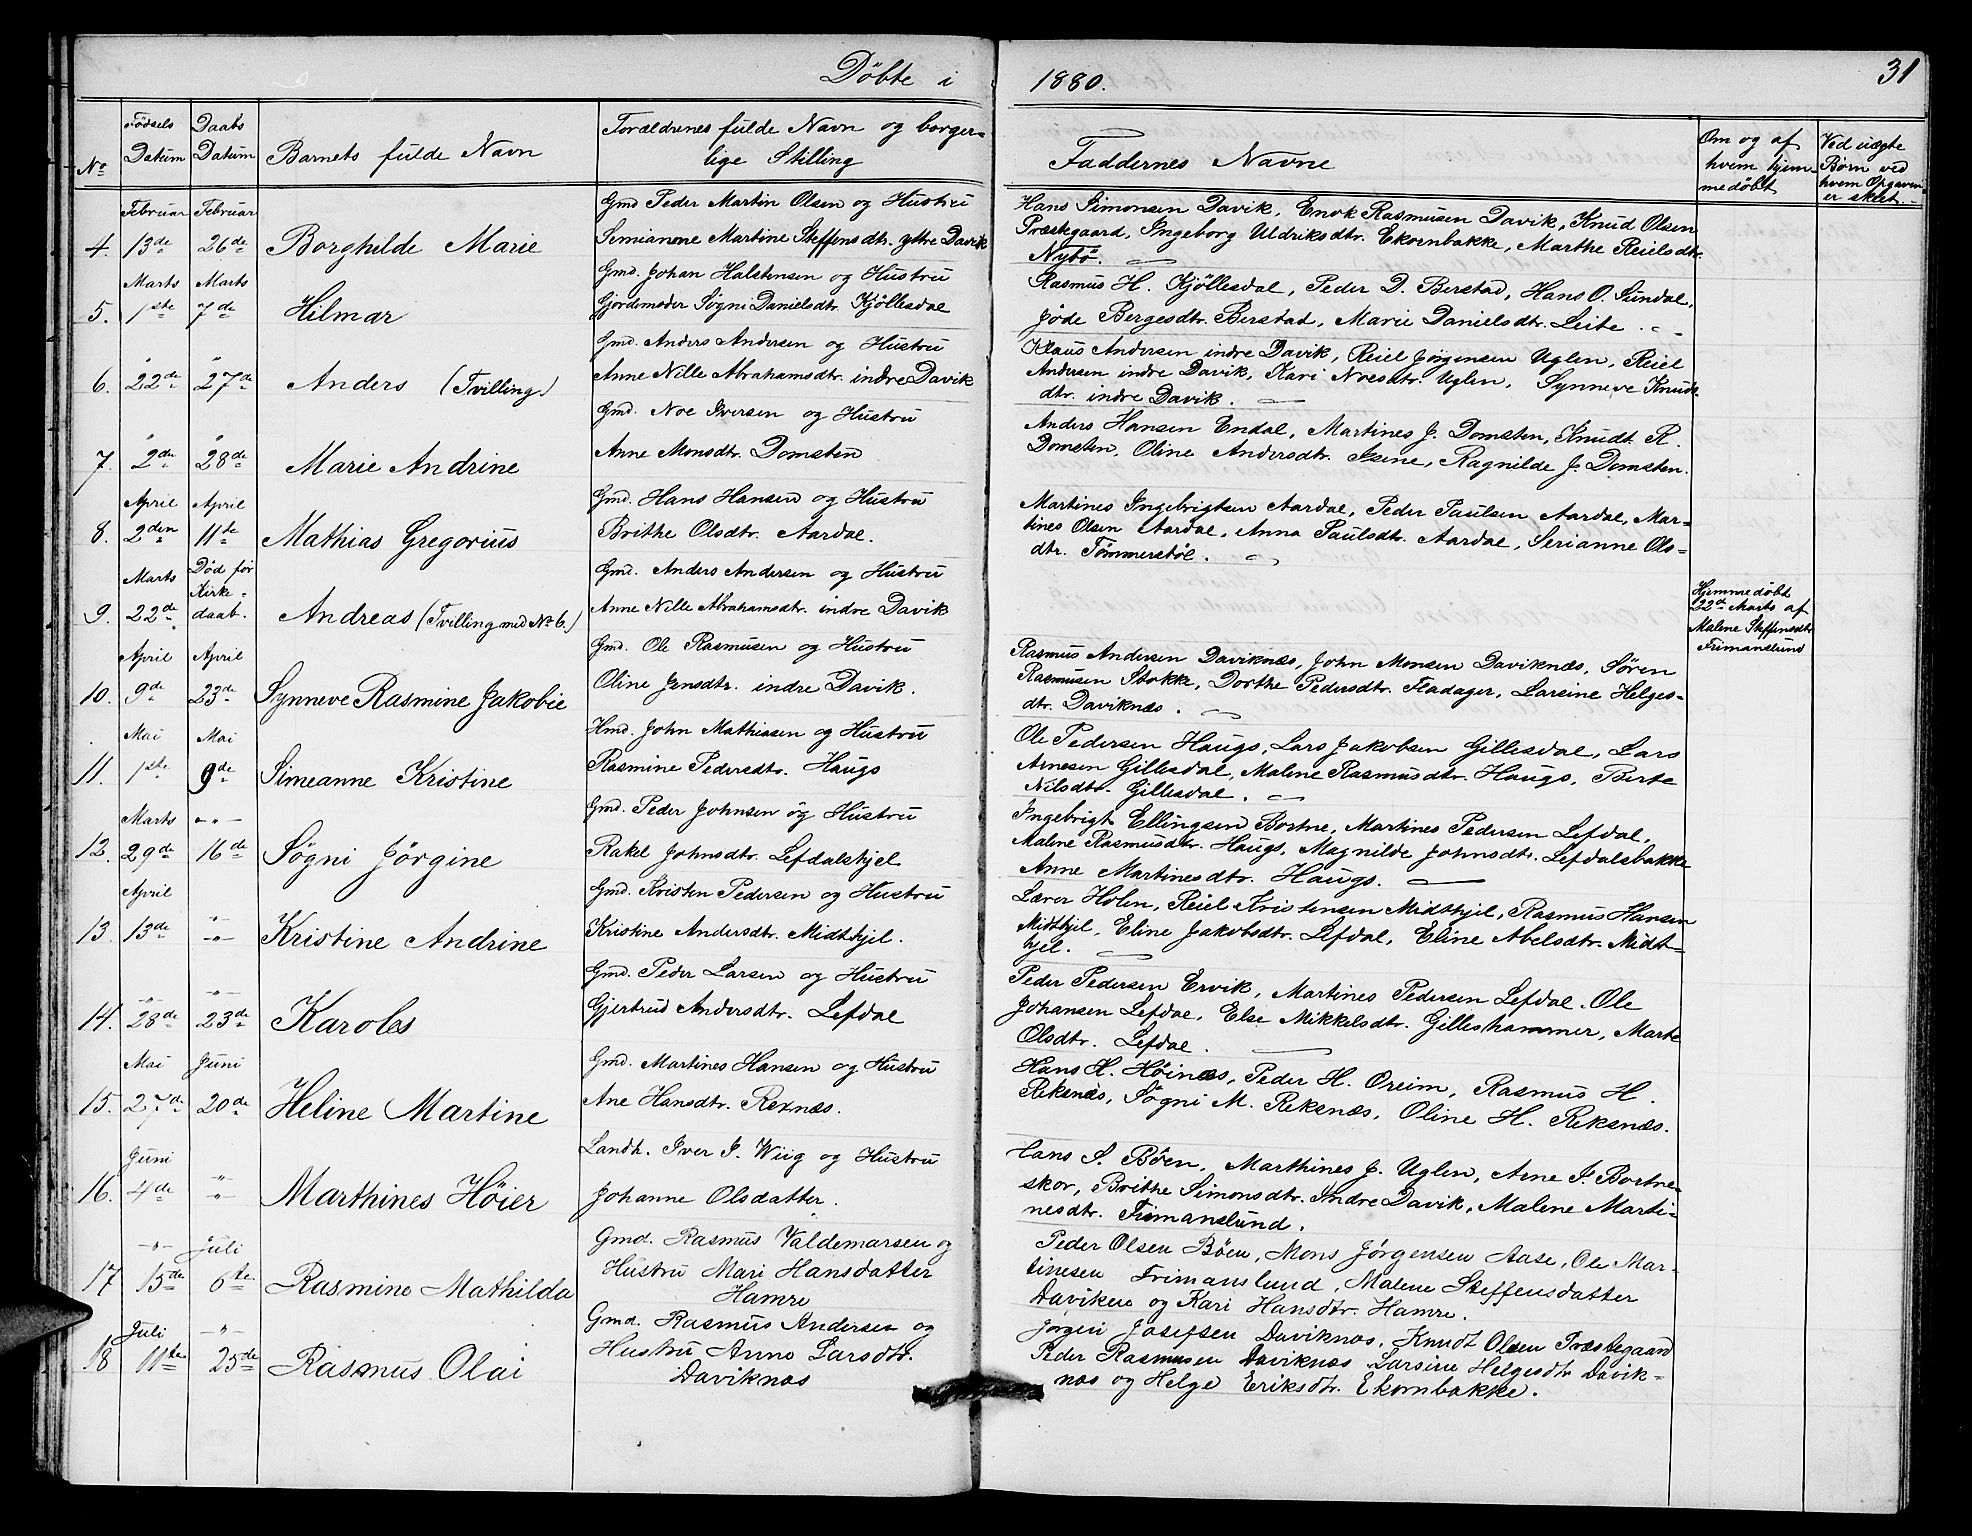 Döbte i 1880. 31
No
Födsels Datum
Daabs Datum
Barnets fulde Navn
Forældrenes fulde Navn og borger-
lige Stilling
Faddernes Navne
Om og af
hvem hjem-
medöbt
Ved uægte
Børn ved
hvem Opgaven
er skeet.
Februar Februar Gmd Peder Martin Olsen og Hustru
4. 13de 26de Borghilde Marie Simianne Martine Steffensdtr. ytre Davik
Hans Simonsen Davik, Enok Rasmusen Davik, Knud Olsen
Præstegaard, Ingeborg Uldriksdtr. Ekornbakke, Marthe Reielsdtr.
Nybö.
Marts Marts Gmd. Johan Halstensen og Hustru
5. 1ste 7de Hilmar Gjordemoder Søgni Danielsdtr. Kjöllesdal
Rasmus H. Kjöllesdal, Peder D. Berstad, Hans O. Sundal,
Jöde Bergesdtr. Berstad, Marie Danielsdtr. Leite.
" " Gmd. Anders Andersen og Hustru
6. 22de 27de Anders (Tvilling) Anne Nille Abrahamsdtr. indre Davik
Klaus Andersen indre Davik, Reiel Jørgensen Uglen, Reiel
Andersen indre Davik, Kari Noesdtr. Uglen, Synneve Knuds
dtr. indre Davik.
" " Gmd. Noe Iversen og Hustru
7. 2de 28de Marie Andrine Anne Monsdtr. Domsten
Anders Hansen Endal, Martines J. Domsten, Knudt R.
Domsten, Oline Andersdtr. Isene, Ragnilde J. Domsten.
April April Gmd. Hans Hansen og Hustru
8. 2den 11te Mathias Gregorius Brithe Olsdtr. Aardal.
Martines Ingebrigtsen Aardal, Peder Paulsen Aardal, Mar-
tines Olsen Aardal, Anna Paulsdtr. Aardal, Serianne Ols-
dtr. Tömmerstöl.
Marts Död før Gmd. Anders Andersen og Hustru
Kirke-
9. 22de daab. Andreas (Tvilling med No 6.) Anne Nille Abrahamsdtr. indre Davik
Hjemmedöbt
22de Marts af
Malene Steffensdtr
Frimanslund
April April Gmd. Ole Rasmusen og Hustru
10. 9de 23de Synneve Rasmine Jakobie Oline Jensdtr. indre Davik.
Rasmus Andersen Daviknæs, John Monsen Daviknæs, Sören
Rasmusen Stokke, Dorthe Pedersdtr. Fladager, Larsine Helges-
dtr. Daviknæs.
Mai Mai Hmd. John Mathiasen og Hustru
11. 1ste 9de Simeanne Kristine Rasmine Pedersdtr. Haugs
Ole Pedersen Haugs, Lars Jakobsen Gillesdal, Lars
Arnesen Gillesdal, Malene Rasmusdtr. Haugs, Birte
Nilsdtr. Gillesdal.
Marts -"- Gmd. Peder Johnsen og Hustru
12. 29de 16de Søgni Jörgine Rakel Johnsdtr. Lefdalshjel
Ingebrigt Ellingsen Bortne, Martines Pedersen Lefdal,
Malene Rasmusdtr. Haugs, Magnilde Johnsdtr. Lefdalsbakke
Anne Martinesdtr. Haugs.
April Gmd. Kristen Pedersen og Hustru
13. 13de -"- Kristine Andrine Kristine Andersdtr. Midthjel.
Lærer Holen, Reiel Kristensen Midthjel, Rasmus Hansen
Midthjel, Eline Jakobsdtr. Lefdal, Eline Abelsdtr. Midt-
hjel.
-"- -"- Gmd. Peder Larsen og Hustru
14. 28de 23de Karoles Gjertrud Andersdtr. Lefdal
Peder Pedersen Ervik, Martines Pedersen Lefdal. Ole
Johansen Lefdal, Else Mikkelsdtr. Gilleshammer, Marte
Olsdtr. Lefdal.
Mai Juni Gmd. Martines Hansen og Hustru
15. 27de 20de Heline Martine Ane Hansdtr. Rexnæs.
Hans H. Höinæs, Peder H. Oreim, Rasmus H.
Reksnæs, Søgni M. Reksnæs, Oline H. Reksnæs.
Juni -"- Landh. Iver J. Wiig og Hustru
16. 4de -"- Marthines Höier Johanne Olsdatter.
Hans S. Böen, Marthines J. Uglen, Arne J. Bortne-
skor, Brithe Simonsdtr. Indre Davik, Malene Marti-
nesdtr. Fimanslund.
-"- Juli Gmd. Rasmus Valdemarsen og
17 15de 6te Rasmine Mathilda Hustru Mari Hansdatter
Hamre
Peder Olsen Böen, Mons Jörgensen Aase, Ole Mar-
tinesen Frimanslund, Malene Steffensdatter
Daviken og Kari Hansdtr. Hamre.
Juli -"- Gmd. Rasmus Andersen og
18 11te 25de Rasmus Olai Hustru Anne Larsdtr.
Daviknæs
Jørgen Josefsen Daviknæs, Knudt Olsen Præstegaard
Peder Rasmusen Daviknæs Larsine Helgesdtr Davik-
næs og Helge Eriksdtr. Ekornbakke.